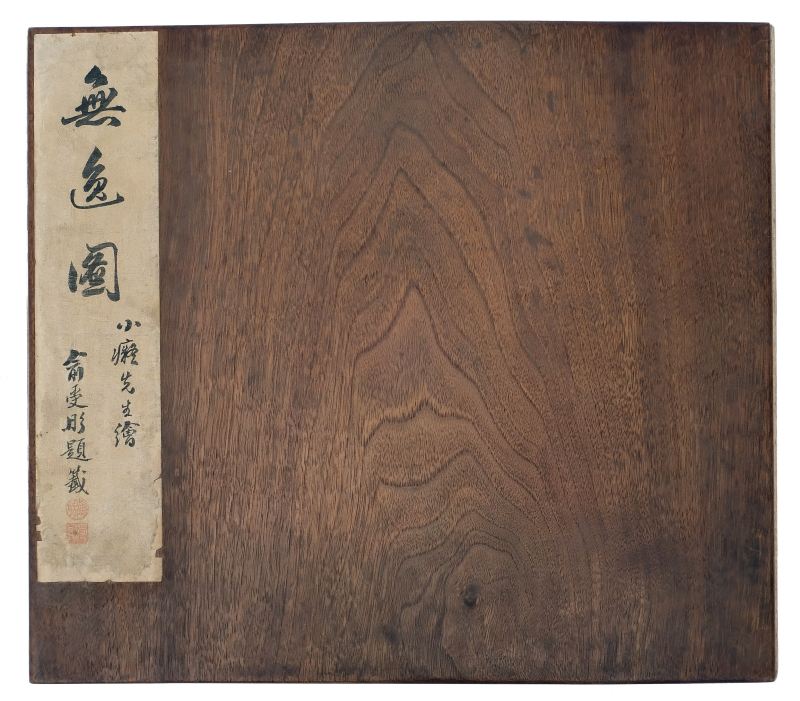 無逸圖
小癡先生繪
俞受彤題籤